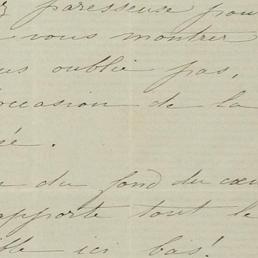 paresseuse pour
vous montrer
oublie pas,
occasion de la
ée.
du fond du cœu
apporte tout le
ble ici bas!